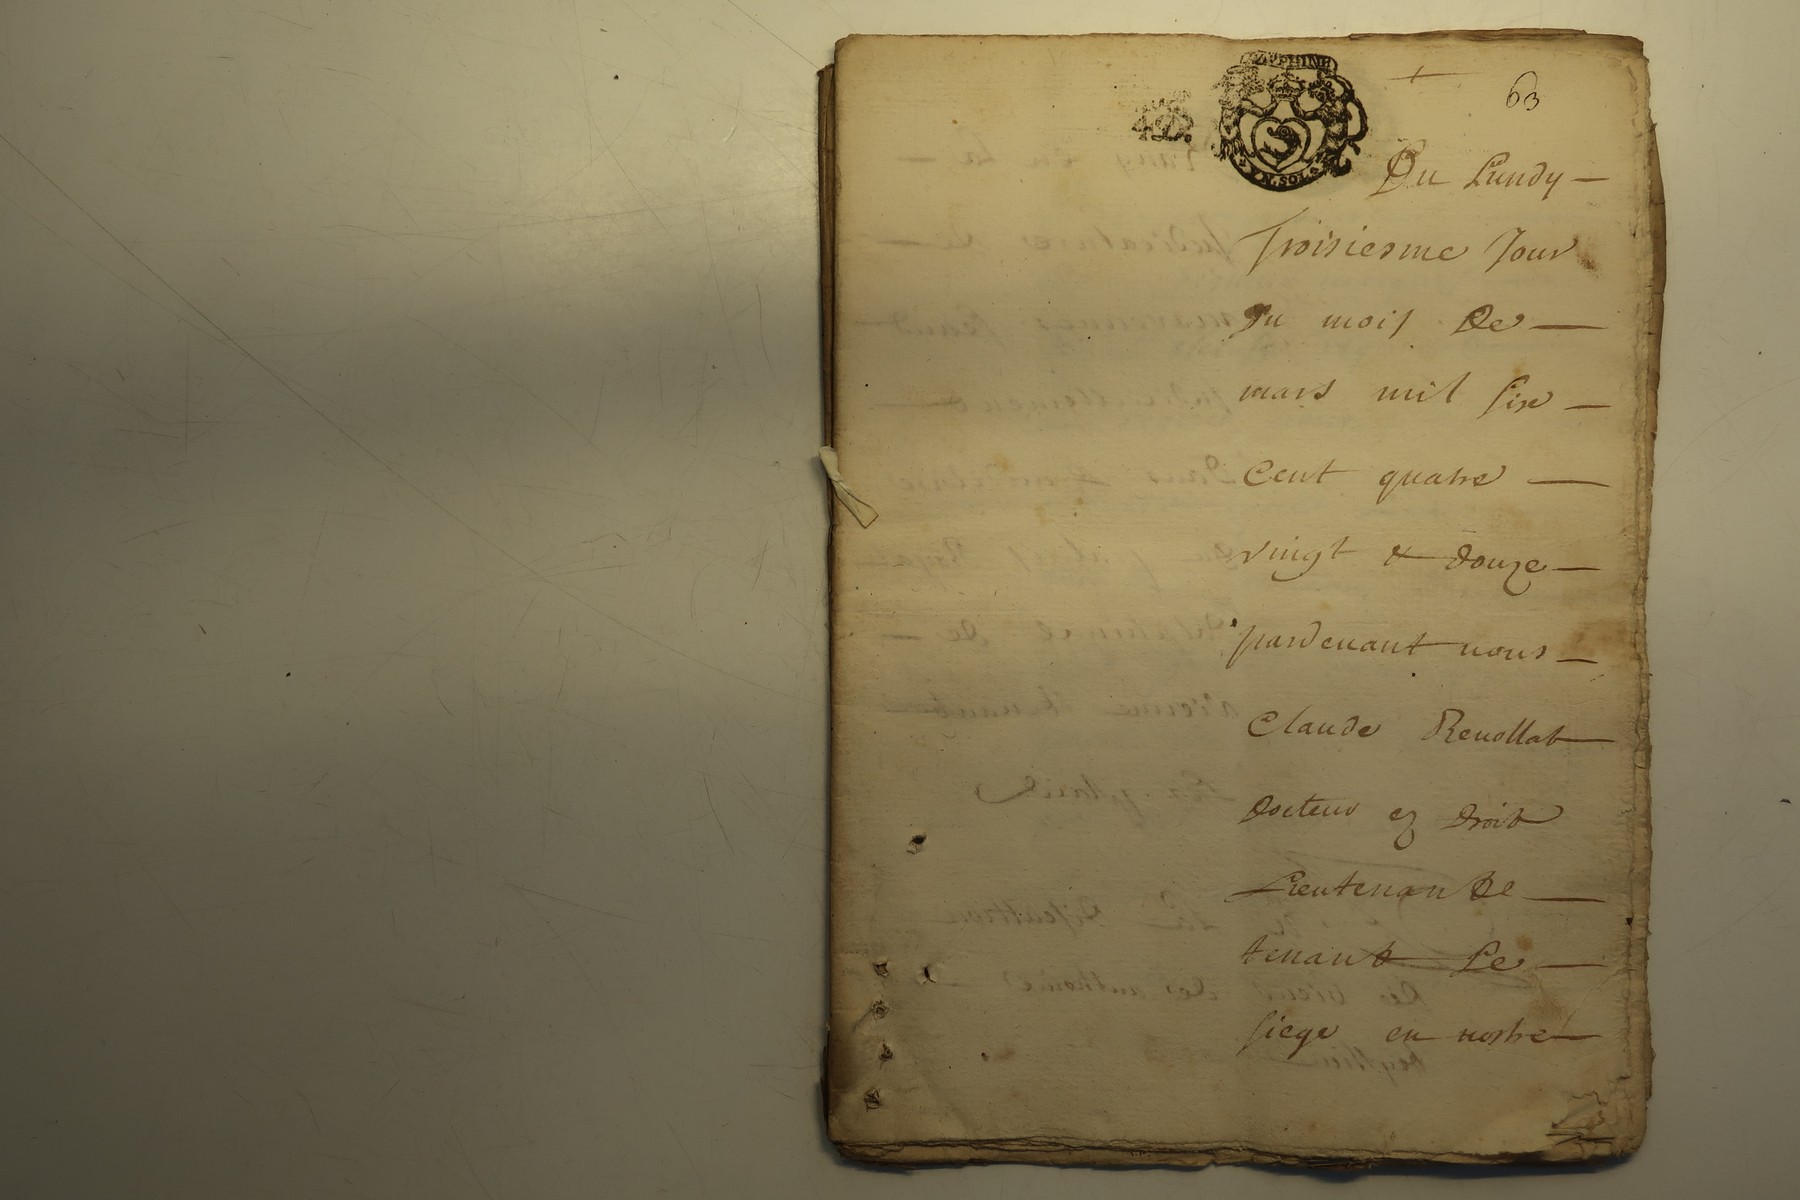 63
DAVPHINE
VN. SOL
Du Lundy —
Troisiesme Jour
Du mois De —
mars mil six —
Cent quatre —
vingt & douze —
pardevant nous —
Claude Revollat
Docteur ez Droit
Lieutenant De —
tenant Le —
siege en nostre —